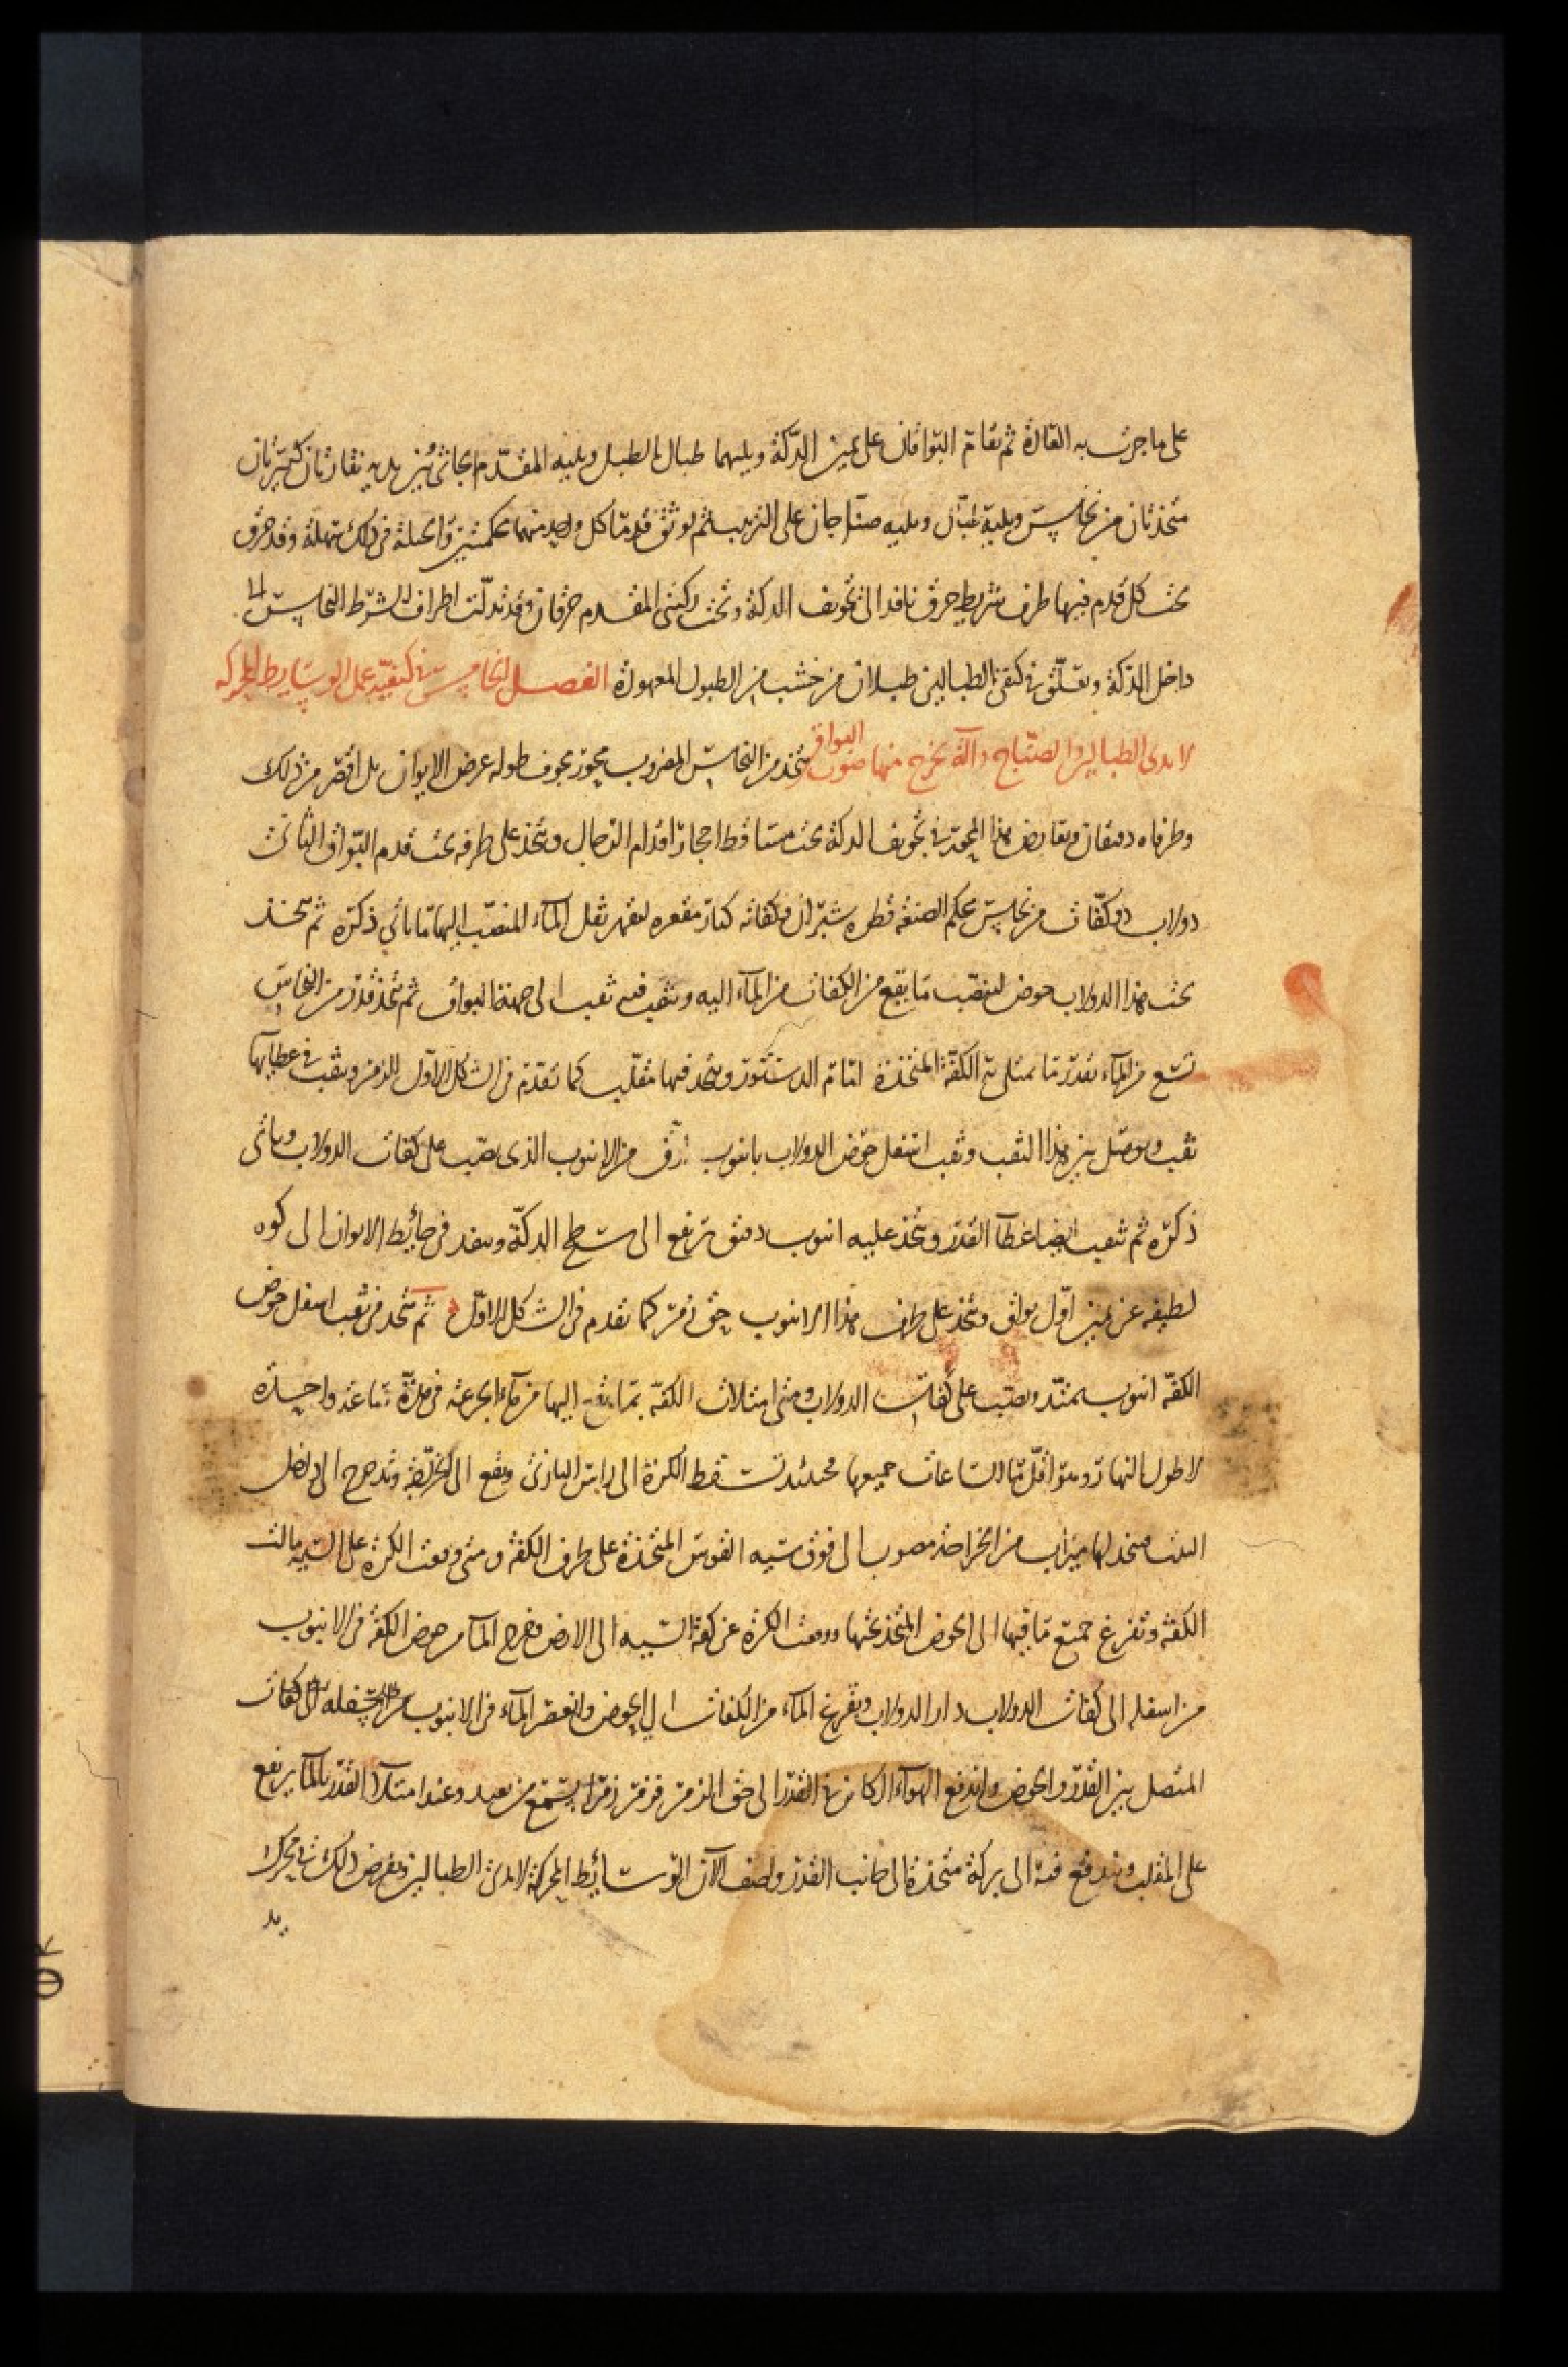 على ما جرت به العادة ثم يقام البواقان على يمين الدكة ويليهما طبال الطبل ويليه المقدم الجاثي بين يديه نقارتان كبيرتان
متخذتان من نحاس ويليه طبال ويليه صناجان على الترتيب ثم يوثق قدما كل واحد منهما محكمتين والحيلة في ذلك سهلة وقد خرق
تحت كل قدم فيها طرف شريط خرق نافذ الى تجويف الدكة وتحت ركبتي المقدم خرقان وقد تدلت اطراف الشرط النحاس الى
داخل الدكة وتعلق في كتفي الطبالين طبلان من خشب من الطبول المعهودة الفصل الخامس في كيفية عمل الوسايط المحركه
لايدى الطبالين والصناج وآلة يخرج منها صوت البواق يتخذ من النحاس المضروب محور مجوف طوله عرض الايوان بل اقصر من ذلك
وطرفاه دقيقان ويعارض هذا المحور في تجويف الدكة تحت مساقط احجار اقدام الرجال ويتخذ على طرفه تحت قدم البواق الثاني
دولاب ذو كفات من نحاس محكم الصنعة قطره شبران وكفاته كبار مقعره ليقهر ثقل الماء المنصب اليها ما يأتي ذكره ثم يتخذ
تحت هذا الدولاب حوض لينصب ما يقع من الكفات من الماء اليه ويثقب فيه ثقب الى جهة البواق ثم يتخذ قدر من النحاس
تسع من الماء بقدر ما يمتلي به الكفة المتخذة امام الدستور ويتخذ فيها مقلب كما تقدم في الشكل الاول للزمر ويثقب في غطائها
ثقب ويوصل بين هذا الثقب وثقب اسفل حوض الدولاب بانبوب ارق من الانبوب الذي يصب على كفات الدولاب وياتي
ذكره ثم يثقب ايضا غطآ القدر ويتخذ عليه انبوب دقيق يرتفع الى سطح الدكة وينفذ في حائط الايوان الى كوه
لطيفه عن يمين اول بواق ويتخذ على طرف هذا الانبوب حق زمر كما تقدم في الشكل الاول ثم يتخذ في ثقب اسفل حوض
الكفة انبوب يمتد ويصب على كفات الدولاب ومتى امتلات الكفة بما يقع اليها من ماء الجزعه في مدة ساعة واحدة
لاطول النهار ويتوافق مع الساعات جميعها فحينئذ تسقط الكرة الى راس البازي ويقع الى الخراضة وتدحرج الى داخل
البيت فيتخذ لها ميزاب من الخراضة مصوب الى فوق سيه القوس المتخذة على طرف الكفة ومتى وقعت الكرة على السيه مالت
الكفة وتفرغ جميع ما فيها الى الحوض المتخذ تحتها ووقعت الكرة عن كفة السيه الى الارض وخرج الماء من حوض الكفة في الانبوب
من اسفله الى كفات الدولاب دار الدولاب وتفرغ الماء من الكفات الى الحوض وانعصر الماء في الانبوب من اسفله كفات
المتصل بين القدر والحوض واندفع الهوآء الكائن في القدر الى حق الزمر فزمر زمرا يستمع من بعيد وعند امتلآ القدر بالماء يرتفع
على المقلب ويندفع فيه الى بركة متخذة الى جانب القدر ولصف الآن الوسائط المحركة لايدي الطبالين ونفرض ذلك في تحرك
يد